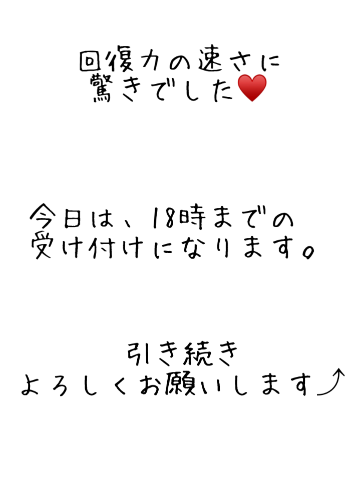 回復力の速さに
驚きでした♥️
今日は、18時までの
受け付けになります。
引き続き
よろしくお願いします⤴